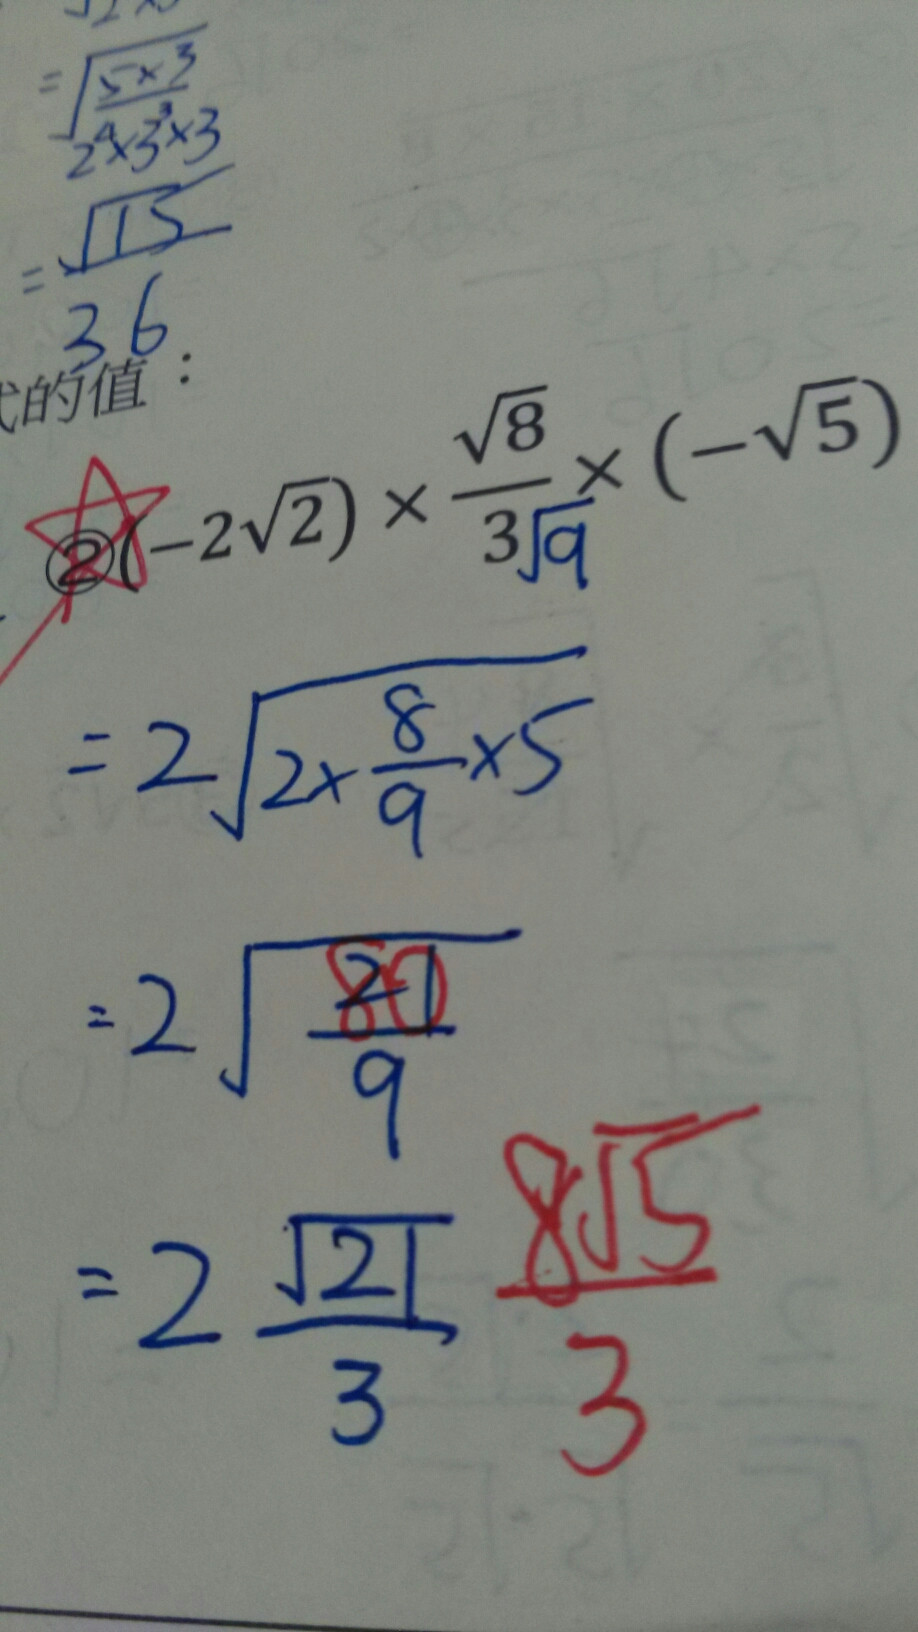 = √(5×3 / 2⁴×3³×3)
= √15 / 36
的值：
②(-2√2) × √8 / 3 √9 × (-√5)
= 2√(2×8/9×5)
= 2√(21/9) 80
= 2 √21 / 3 8√5 / 3